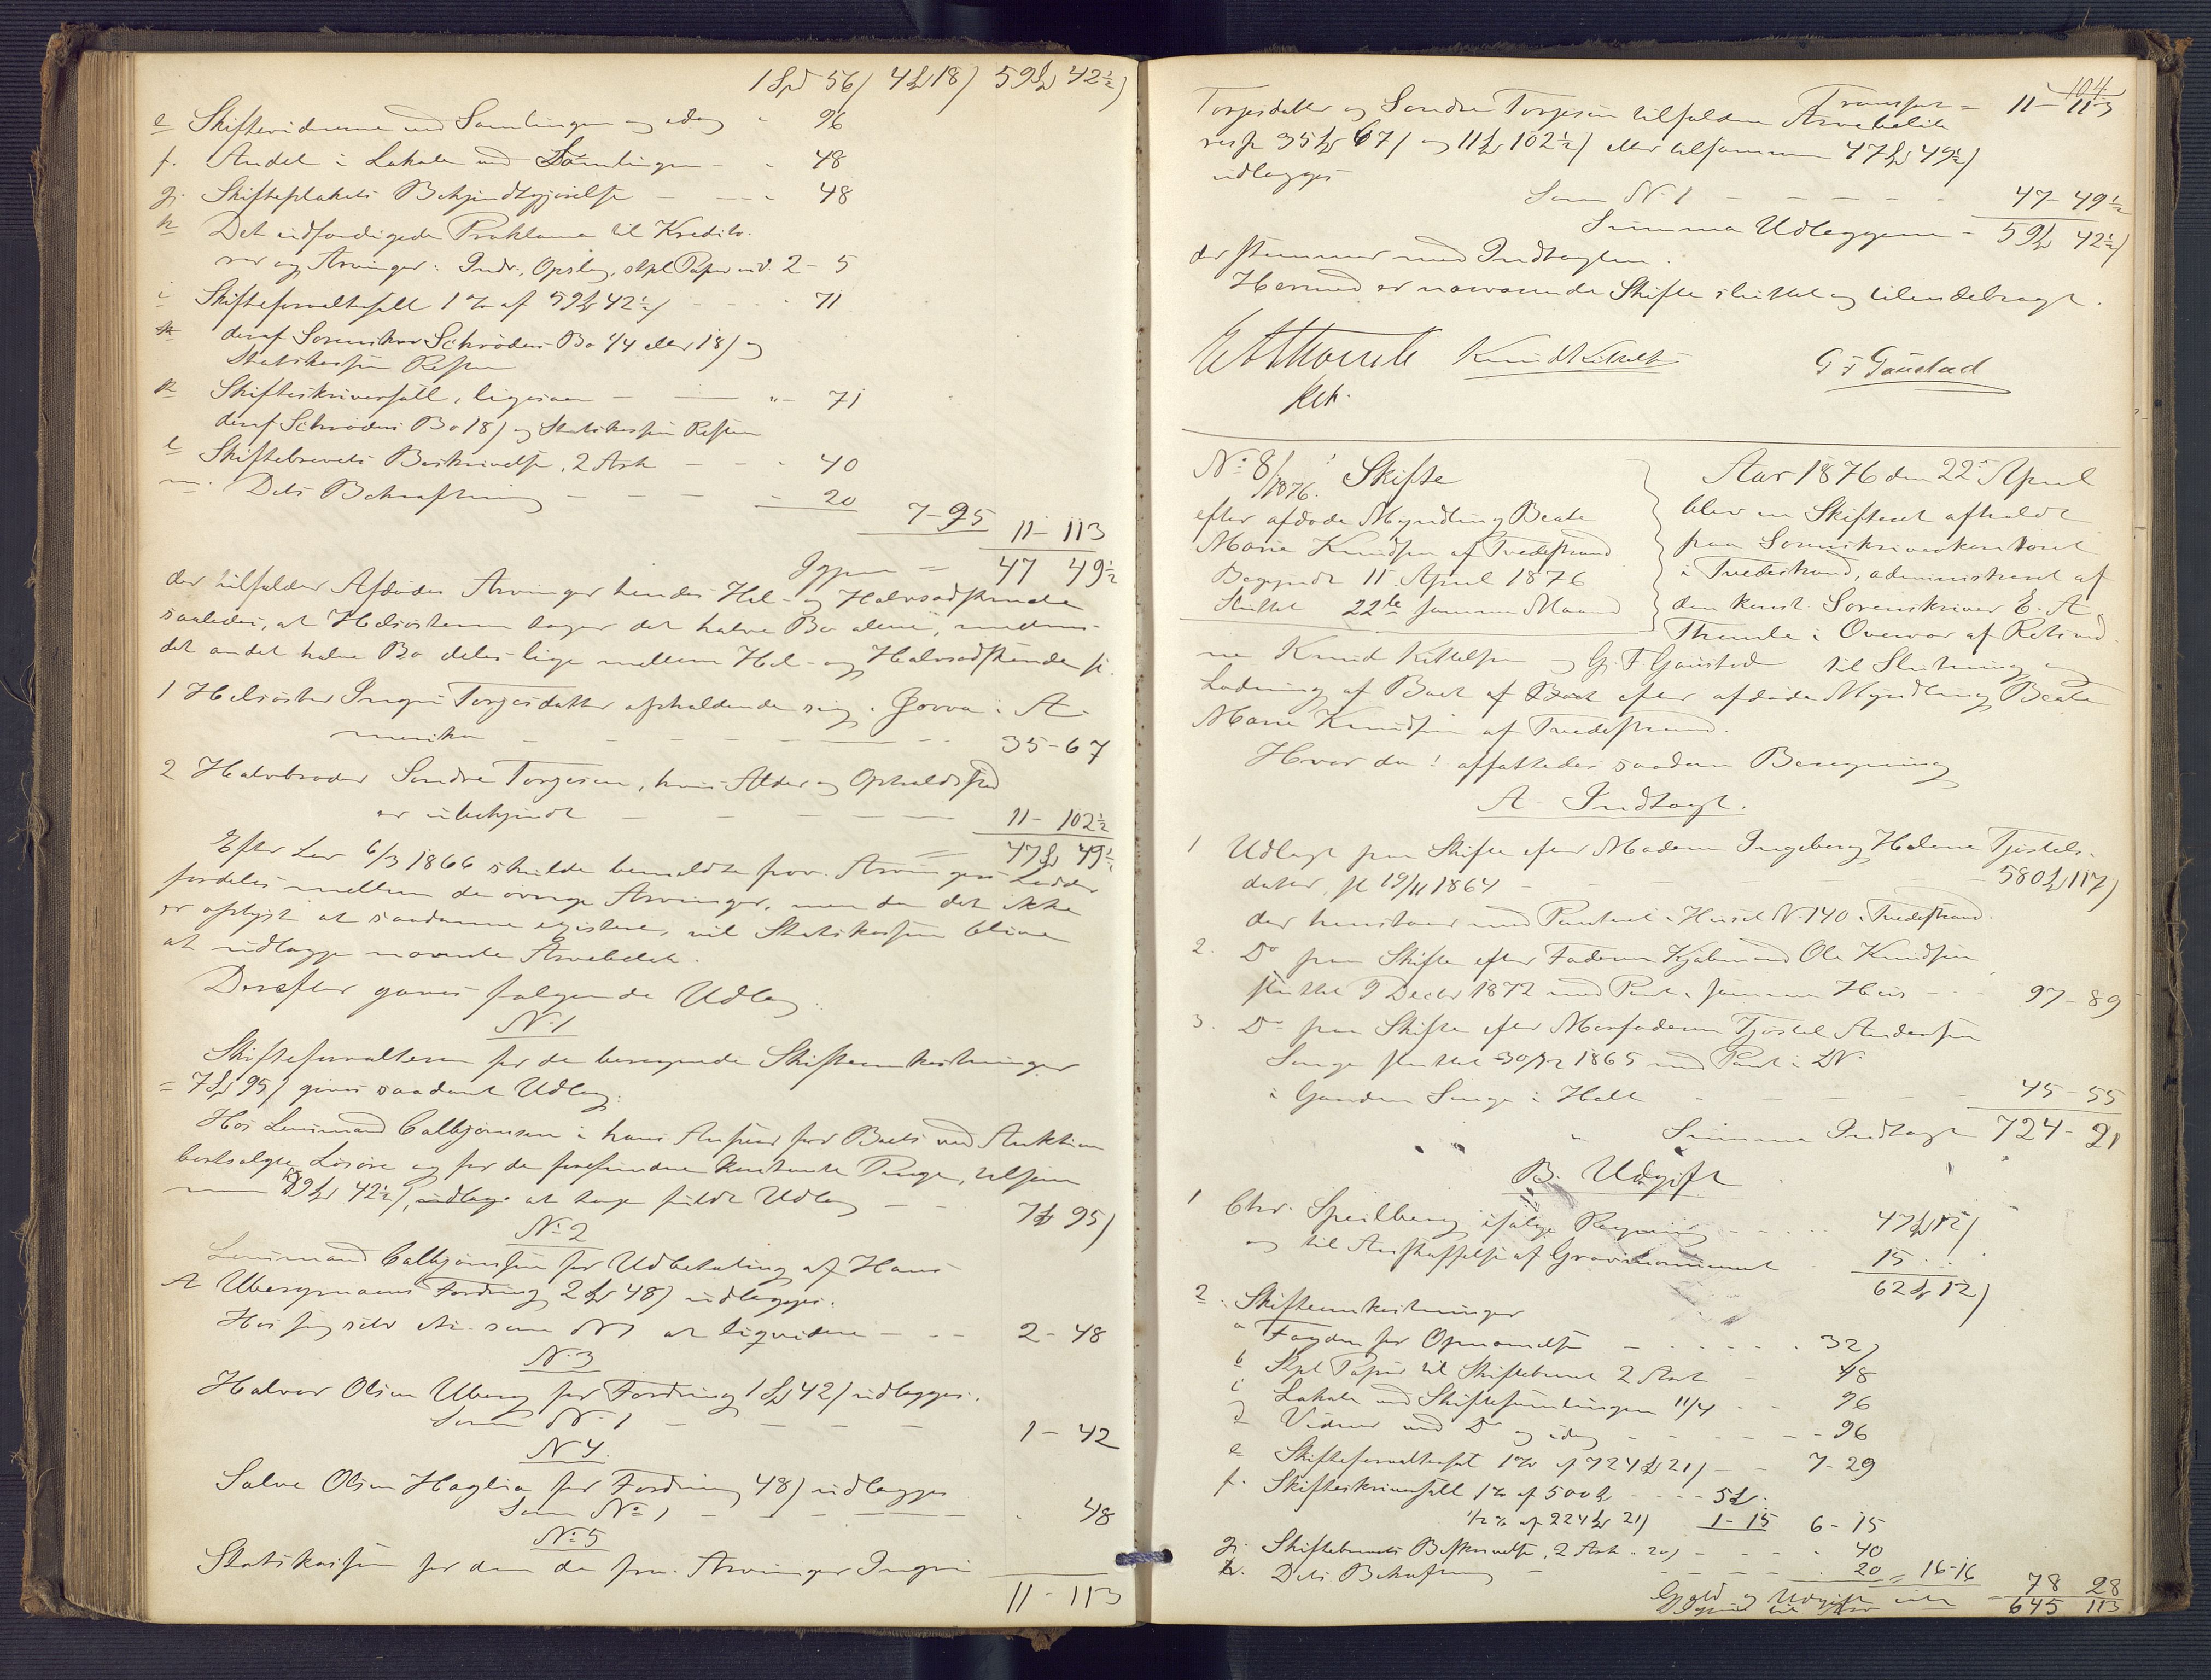 1 Spd 56/ 4 Spd 18/ 59 Spd 42½/
e Skiftevidnerne ved Samlingen og idag - 96
f. Andel i Lokale ved Samlingen - - 48
g. Skifteplakats Bekjendtgjørelse - - - 48
h Det udfærdigede Proklama til Kredito-
rer og Arvinger: Indr., Opslag, stpl. Papir m.v. 2 - 5
i Skifteforvaltersall 1 % af 59 Spd 42½/ - - - 71
deraf Sorenskriver Schrøders Bo 44 eller 18/ og
Statskassen Resten
k Skifteskriversall, ligesaa - - " - 71
deraf Schrøders Bo 18/ og Statskassen Resten
l Skiftebrevets Beskrivelse, 2 Ark - - - 40
m. Dets Bekræftning - - - - 20
7 - 95 11 - 113
Igjen = 47 49½
der tilfalder Afdødes Arvinger hendes Hel- og Halvsødskende
saaledes, at Helsøsteren tager det halve Bo alene, medens
det andet halve Bo deles lige mellem Hel- og Halvsødskende
1 Helsøster Ingri Torjesdatter opholdende sig i A-
merika - - - - - 35 - 67
2 Halvbroder Sondre Torjesen, hvis Alder og Opholdssted
er ubekjendt - - - - 11 - 102½
= 47 Spd 49½
Efter Lov 6/3 1866 skulde bemeldte Arvingers Lodder
fordeles mellem de øvrige Arvinger, men da det ikke
er oplyst at saadanne existere, vil Statskassen blive
at udlægge nævnte Arvebeløb.
Derefter gaves følgende Udlæg
No 1
Skifteforvalteren for de beregnede Skifteomkostninger
= 7 Spd 95/ gives saadant Udlæg:
Hos Lensmand Calbjørnsen i hans Ansvar for Boets ved Auktion
bortsolgte Løsøre og for de forefundne kontante Penge, tilsam
men 59 Spd 42½/, udlægges at tage fuldt Udlæg - - 7 Spd 95/
No 2
Lensmand Calbjørnsen for Udbetaling af Hans
A Ubergmoens Fordring 2 Spd 48/ udlægges.
Hos sig selv som No 1 at liqvidere - - - 2 - 48
No 3
Halvor Olsen Uberg for Fordring 1 Spd 42/ udlægges.
Som No 1 - - - - 1 - 42
No 4.
Salve Olsen Haglia for Fordring 48/ udlægges
Som No 1 - - - - 48
No 5
Statskassen for den de Arvinger Ingri
11 - 113
104
Transport = 11 - 113
Torjesdatter og Sondre Torjesen tilfaldne Arvebeløb
resp 35 Spd 67/ og 11 Spd 102½/ eller tilsammen 47 Spd 49½/
udlægges
Som No 1 - - - - - 47 - 49½
Summa Udlæggene - 59 Spd 42½/
der stemmer med Indtægten.
Hermed er nærværende Skifte sluttet og tilendebragt.
E A Thomle Knud Kittelsen G F Goustad
Kst.
No 8/1876. Skifte
efter afdøde Myndling Beate
Marie Knudsen af Tvedestrand
Begyndt 11 April 1876
Sluttet 22de samme Maaned
Aar 1876 den 22de April
blev en Skifteret afholdt
paa Sorenskriverkontoret
i Tvedestrand, administreret af
den konst. Sorenskriver E. A.
Thomle i Overvær af Retsvid
ne Knud Kittelsen og G. F. Goustad til Slutning og
Lodning af Boet af Boet efter afdøde Myndling Beate
Marie Knudsen af Tvedestrand.
Hvor da! affattedes saadan Beregning
A - Indtægt.
1 Udlagt paa Skifte efter Moderen Ingeborg Helene Tjøstels-
datter, sl 19/11 1864 - - - - 580 Spd 117/
der henstaar med Panteret i Huset No 140 i Tvedestrand.
2. Do paa Skifte efter Faderen Kjøbmand Ole Knudsen
sluttet 9 Decbr 1872 med Pant i samme Hus - - - 97 - 89
3. Do paa Skifte efter Morfaderen Tjøstel Andersen
Songe sluttet 30/12 1865 med Pant i LN
i Gaarden Songe i Holt - - - - - 45 - 55
Summa Indtægt 724 - 21
B. Udgift
1 Chr. Speilberg ifølge Regning - - - 47 Spd 12/
og til Anskaffelse af Gravmonument - 15 - -
62 Spd 12/
2. Skifteomkostninger
a Fogden for Opnævnelse - - - - - 32/
b Stpl. Papir til Skiftebrevet 2 Ark - 48
c Lokale ved Skiftesamlingen 11/4 - - 96
d Vidner ved Do og idag - - - - - 96
e Skifteforvaltersall 1 % af 724 Spd 21/ - - 7 - 29
f. Skifteskriversall 1 % af 500 Spd - - - - 5 Spd.
½ % af 224 Spd 21/ 1 - 15 6 - 15
g. Skiftebrevets Beskrivelse, 2 Ark à 20/ - - - - 40
h. Dets Bekræftning - - - - - 20 = 16 - 16
Gjæld og Udgift 78 28
645 113